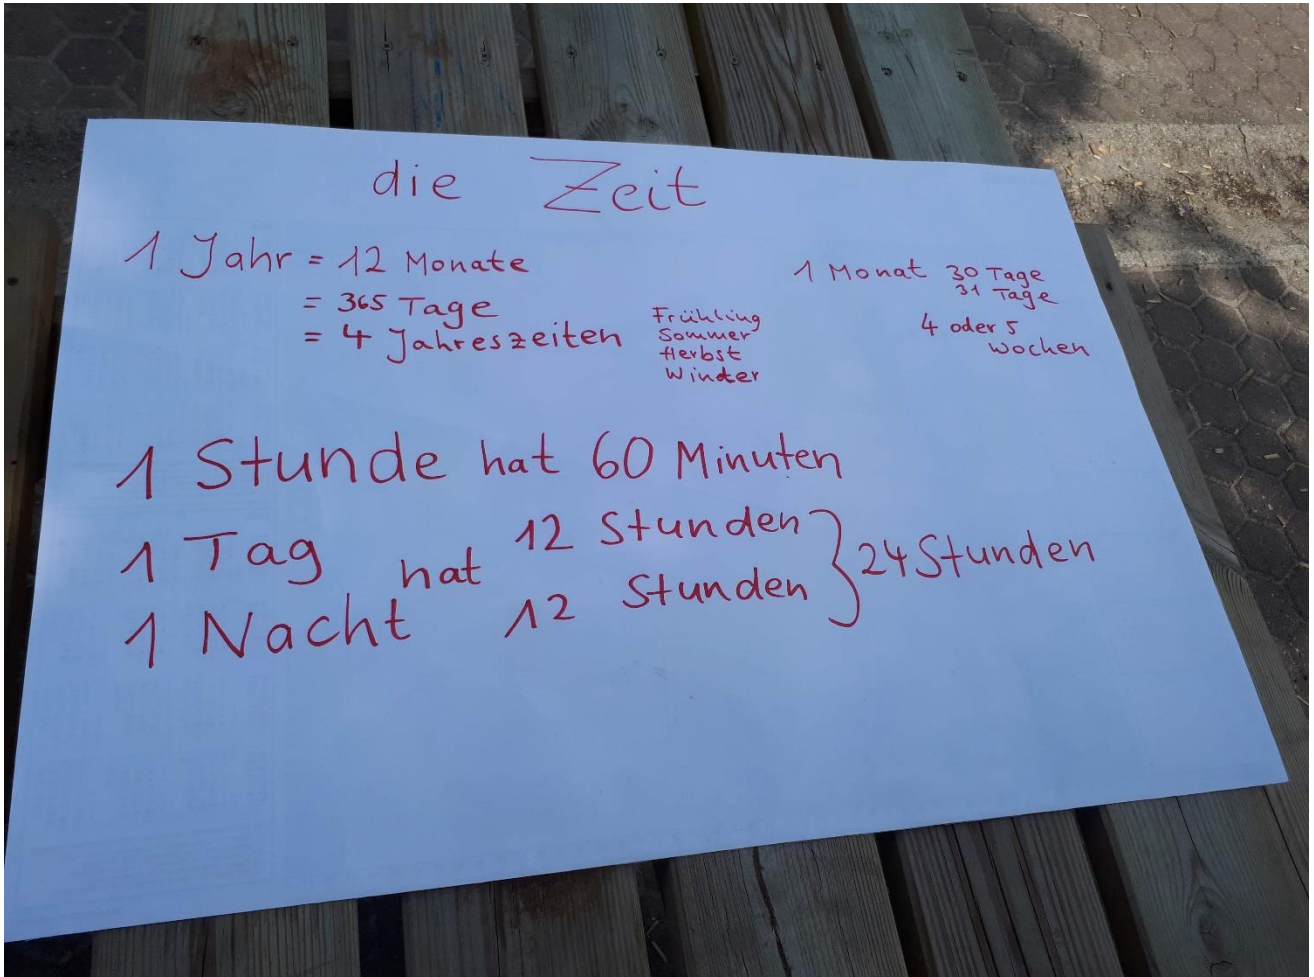 die Zeit
1 Jahr = 12 Monate
= 365 Tage
= 4 Jahreszeiten
Frühling
Sommer
Herbst
Winter
1 Monat 30 Tage
31 Tage
4 oder 5
Wochen
1 Stunde hat 60 Minuten
1 Tag hat 12 Stunden
1 Nacht 12 Stunden
24 Stunden